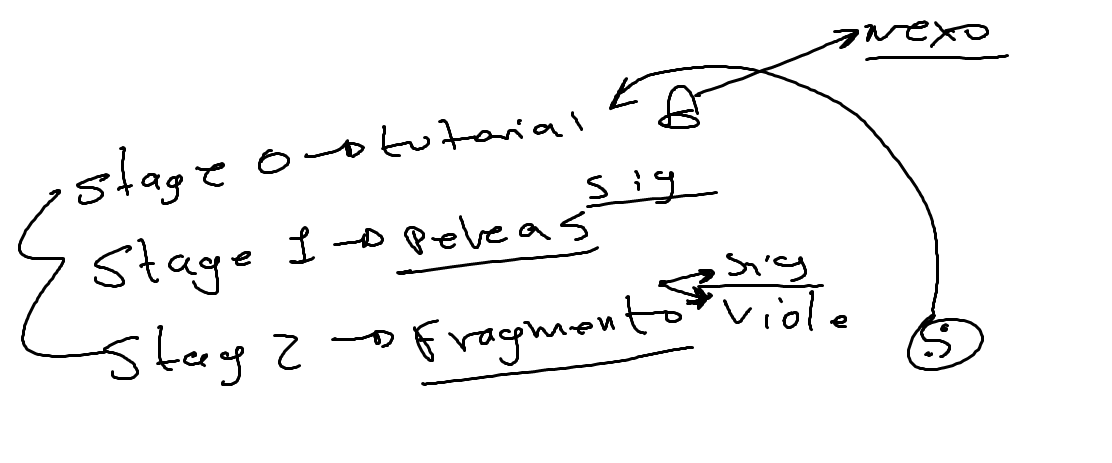 Nexo
Stage 0 → tutorial
sig
Stage 1 → peleas
sig
Stag 2 → Fragmento
Viole
S